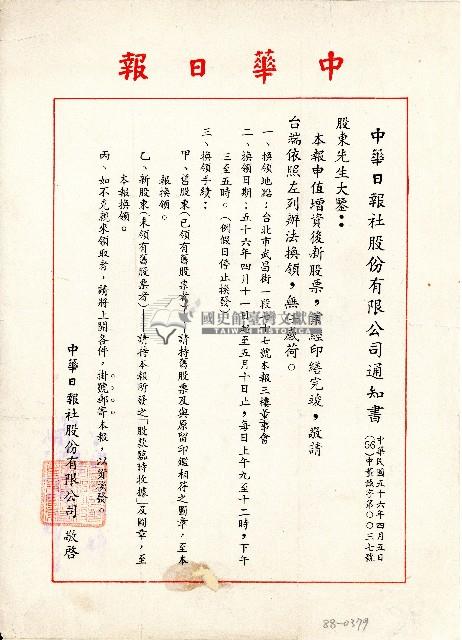 中華日報
中華日報社股份有限公司通知書
中華民國五十六年四月五日
(56)中董議字第〇〇三七號
股東先生大鑒：
本報申值增資後新股票，業經印繕完竣，敬請
台端依照左列辦法換領，無任感荷。
一、換領地點：台北市武昌街一段 七號本報三樓董事會
二、換領日期：五十六年四月十一日起至五月十日止，每日上午九至十二時，下午
三至五時。（例假日停止換發）
三、換領手續：
甲、舊股東（已領有舊股票者） 請持舊股票及與原留印鑑相符之圖章，至本
報換領。
乙、新股東（未領有舊股票者）——請持本報所發之「股款臨時收據」及圖章，至
本報換領。
丙、如不克親來領取者，請將上開各件，掛號郵寄本報，以 發。
中華日報社股份有限公司 敬啓
國史館臺灣文獻館
TAIWAN HISTORICA
88-0379